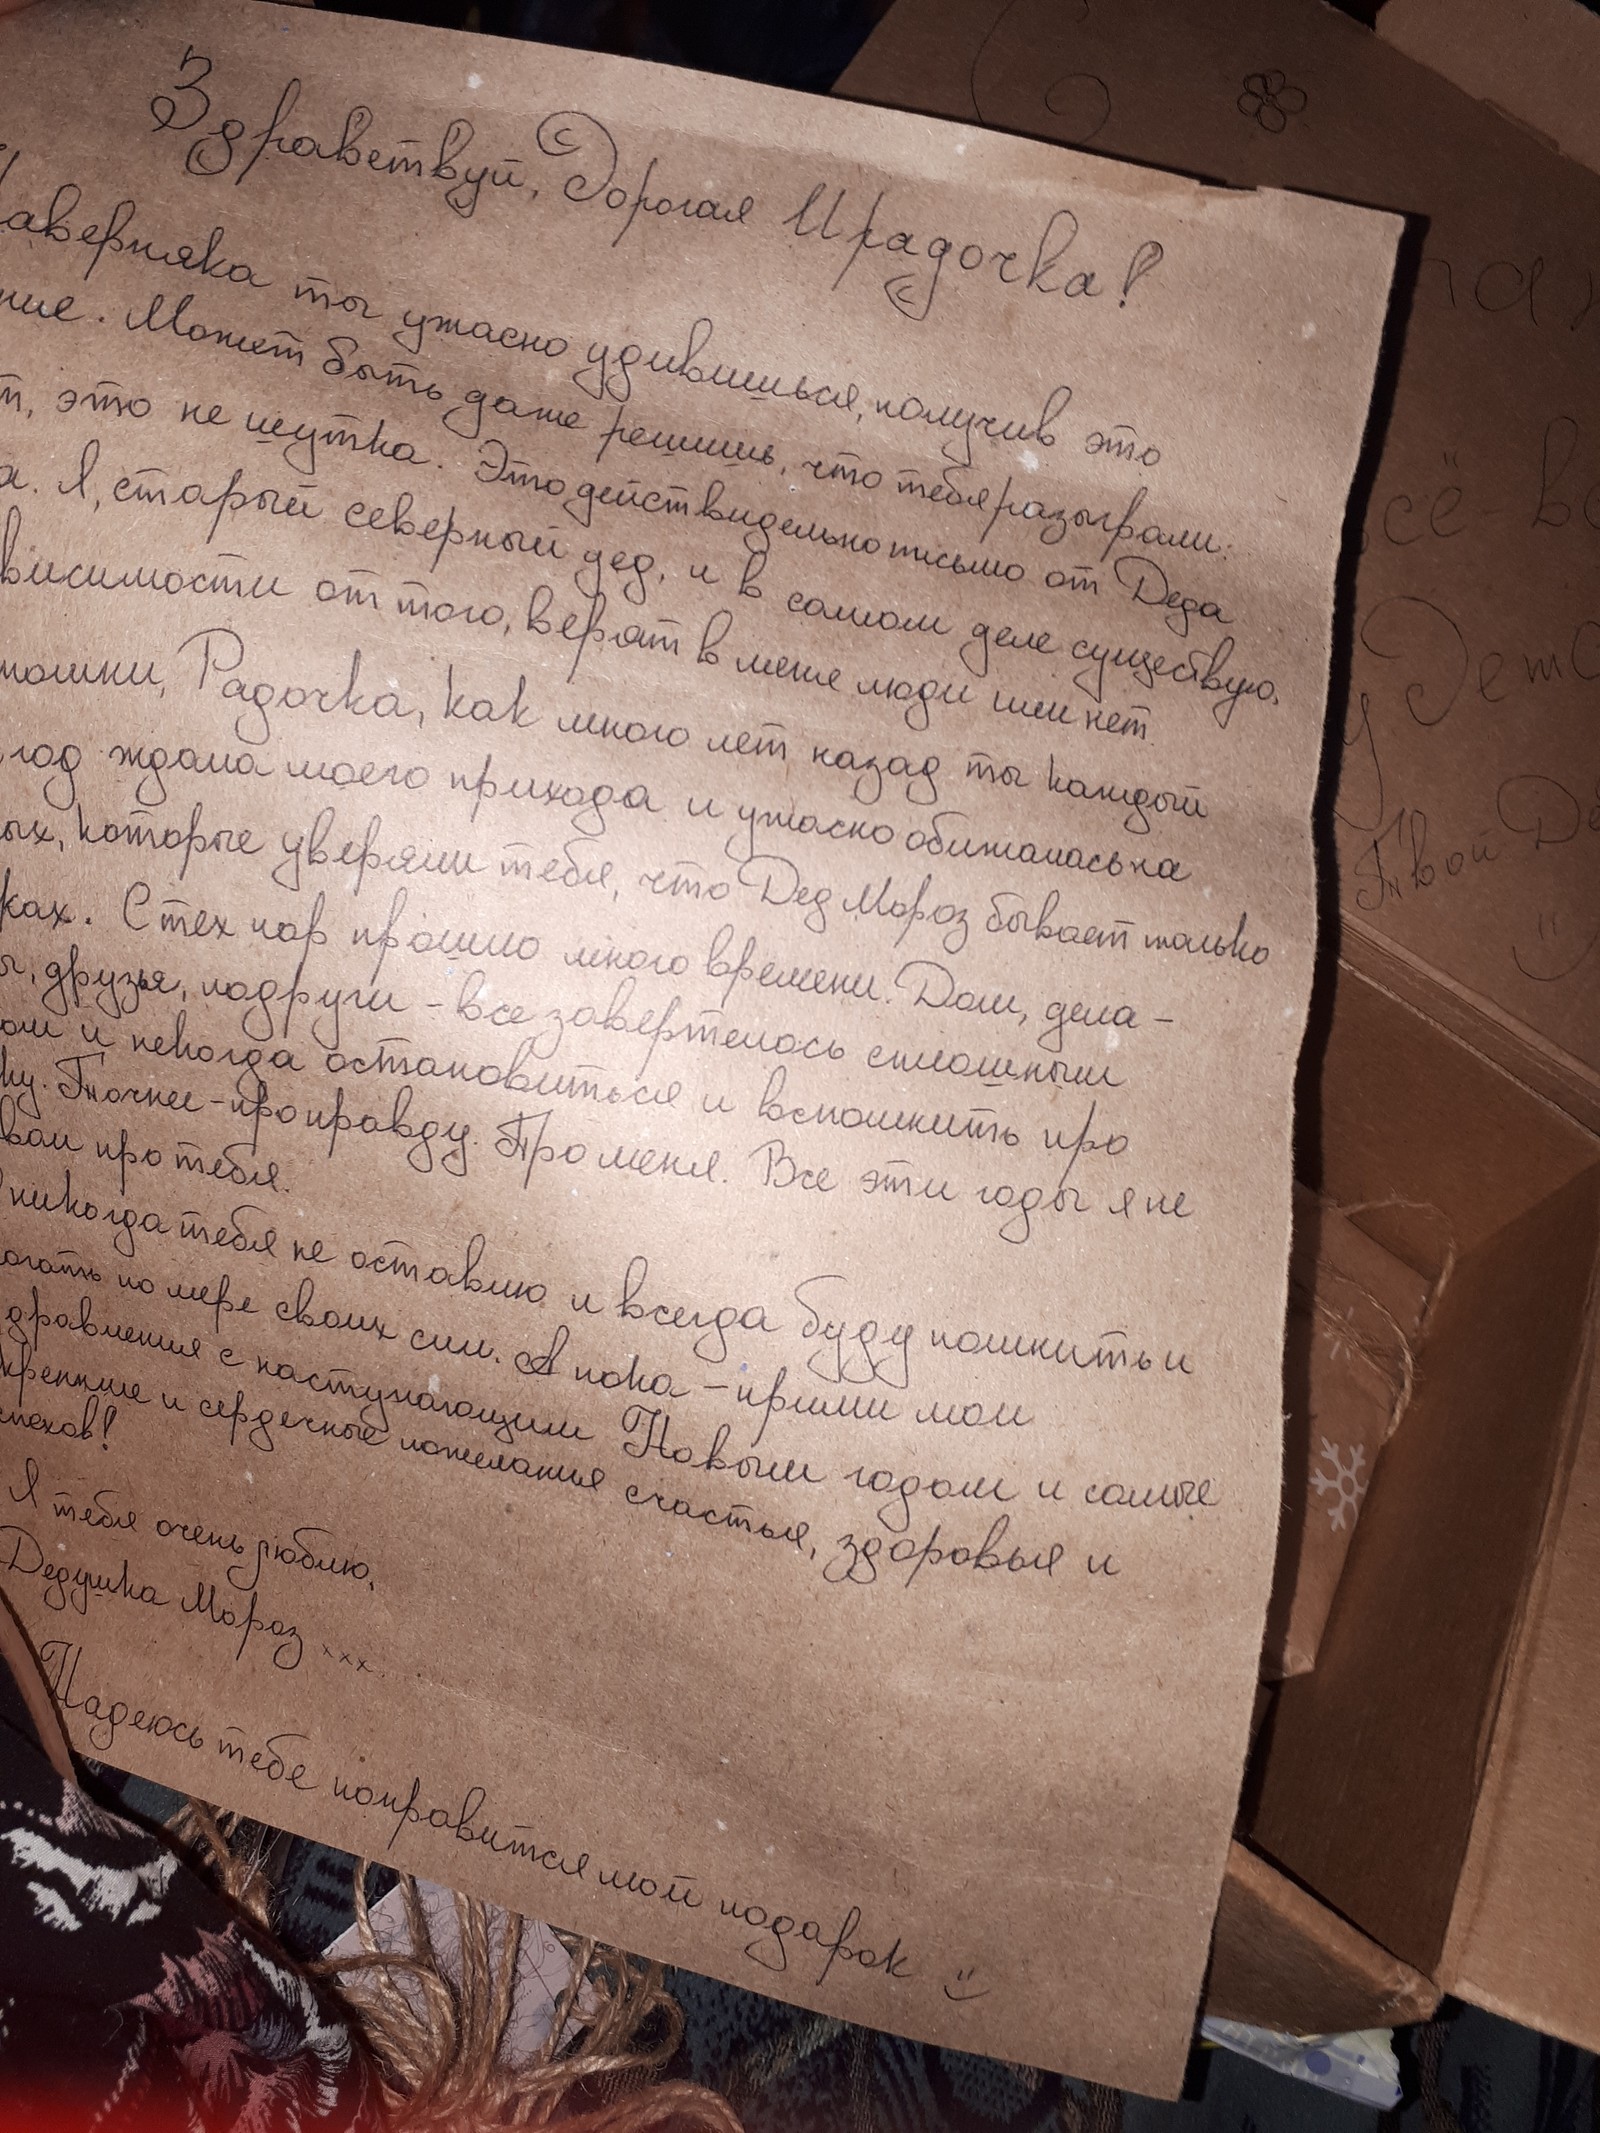 Здравствуй, Дорогая Ирадочка!
Наверняка ты ужасно удивишься, получив это
ние. Может быть даже решишь, что тебя разыграли.
т, это не шутка. Это действидельно письмо от Деда
а. Я, старый северный дед, и в самом деле существую,
висимости от того, верят в меня люди или нет
мнишь, Радочка, как много лет назад ты каждый
год ждала моего прихода и ужасно обижалась на
ых, которые уверяли тебя, что Дед Мороз бывает только
ках. С тех пор прошло много времени. Дом, дела -
ы, друзья, подруги - все завертелось сплошным
ом и некогда остановиться и вспомнить про
ку. Точнее - про правду. Про меня. Все эти годы я не
вал про тебя.
никогда тебя не оставлю и всегда буду помнить и
огать по мере своих сил. А пока - прими мои
дравления с наступающим Новым годом и самые
кренние и сердечные пожелания счастья, здоровья и
спехов!
Я тебя очень люблю,
Дедушка Мороз xxx...
Надеюсь тебе понравится мой подарок
С
сё во
у Дет
Твой Де